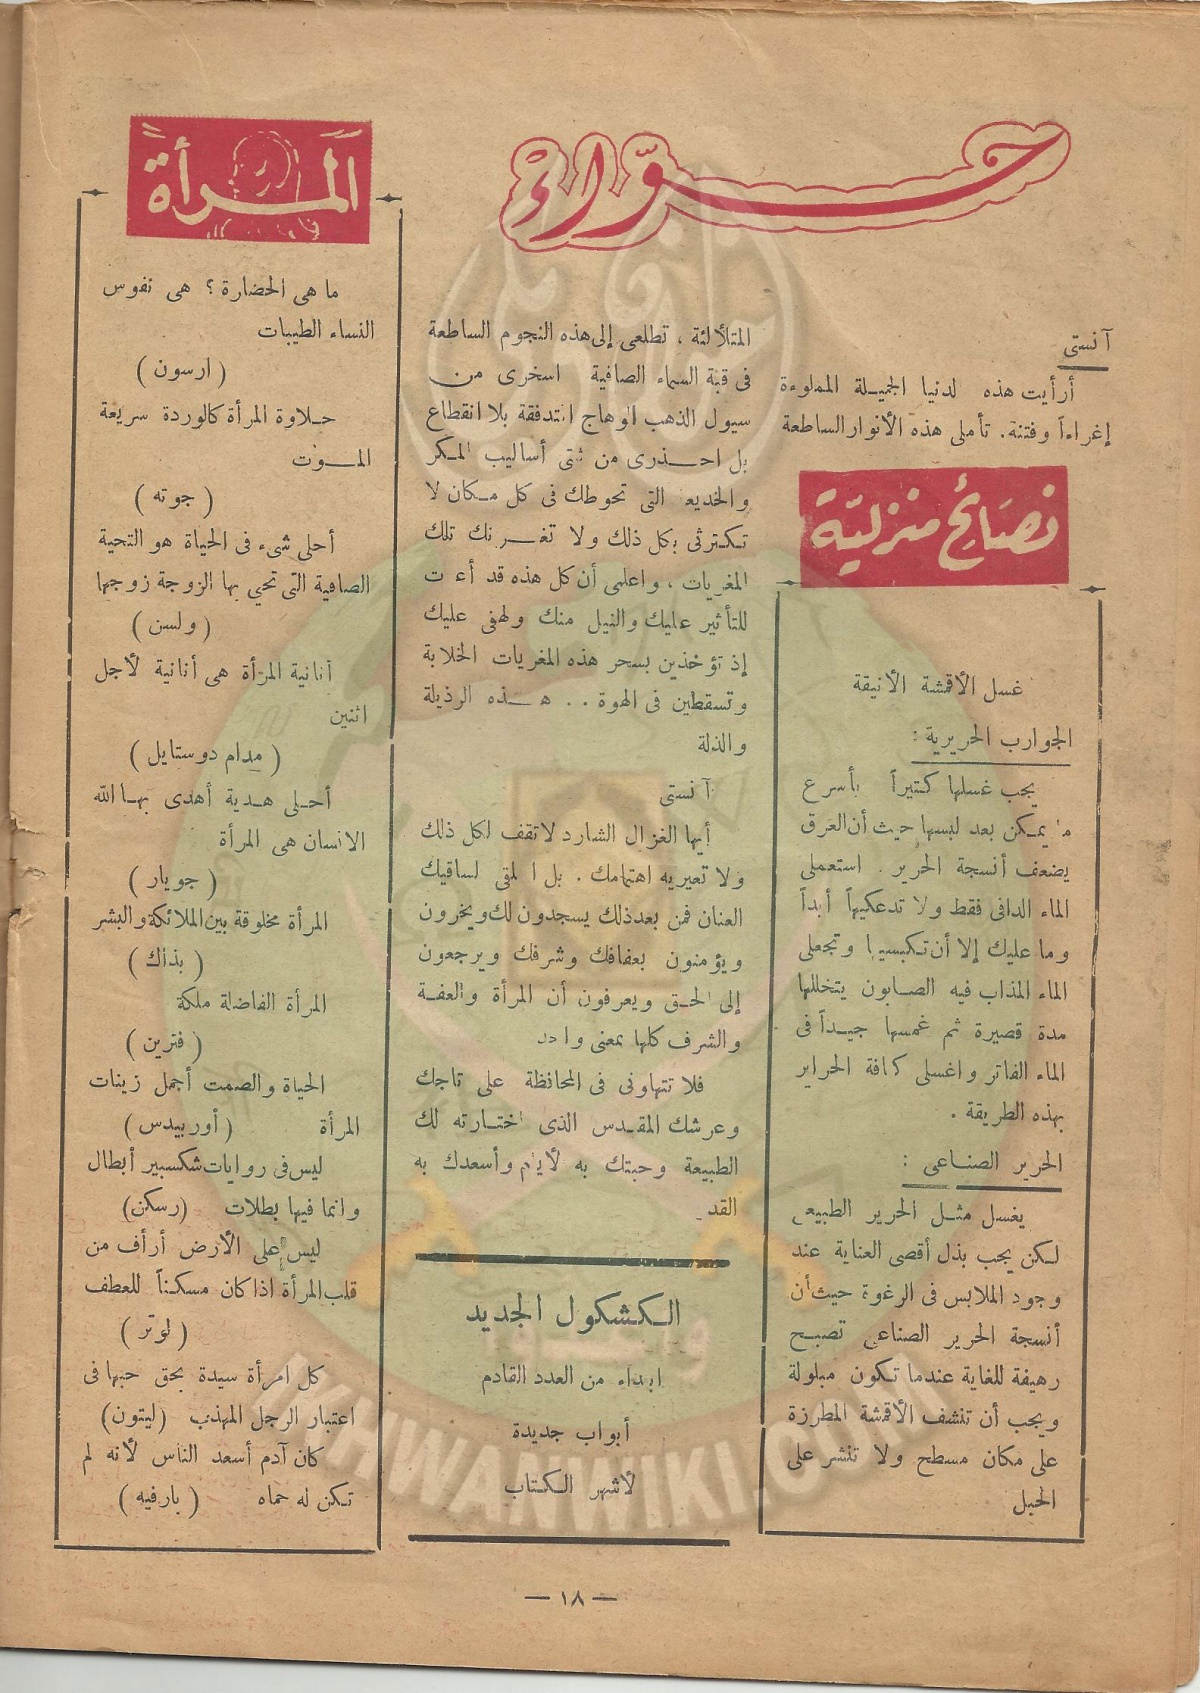 حوّاء
آنستى
أرأيت هذه لدنيا الجميلة المملوءة
إغراءاً وفتنة. تأملى هذه الأنوار الساطعة
المتلألئة ، تطلعى إلى هذه النجوم الساطعة
فى قبة السماء الصافية اسخرى من
سيول الذهب الوهاج المتدفقة بلا انقطاع
بل احذرى من شتى أساليب المكر
والخديعة التى تحوطك فى كل مكان لا
تكترثى بكل ذلك ولا تغرنك تلك
المغريات ، واعلمى أن كل هذه قد أعدت
للتأثير عليك والنيل منك ولهفى عليك
إذ تؤخذين بسحر هذه المغريات الخلابة
وتسقطين فى الهوة .. هذه الرذيلة
والذلة
آنستى
أيها الغزال الشارد لا تقف لكل ذلك
ولا تعيريه اهتمامك . بل القى لساقيك
العنان فمن بعد ذلك يسجدون لك ويخرون
ويؤمنون بعفافك وشرفك ويرجعون
إلى الحق ويعرفون أن المرأة والعفة
والشرف كلها بمعنى واحد
فلا تتهاونى فى المحافظة على تاجك
وعرشك المقدس الذى اختارته لك
الطبيعة وحبتك به لأيام وأسعدك به
القدر
الكشكول الجديد
ابتداء من العدد القادم
أبواب جديدة
لأشهر الكتاب
نصائح منزليّة
غسل الأقمشة الأنيقة
الجوارب الحريرية :
يجب غسلها كثيراً بأسرع
ما يمكن بعد لبسها حيث أن العرق
يضعف أنسجة الحرير . استعملى
الماء الدافى فقط ولا تدعكيها أبداً
وما عليك إلا أن تكبسيها وتجعلى
الماء المذاب فيه الصابون يتخللها
مدة قصيرة ثم غمسها جيداً فى
الماء الفاتر واغسلى كافة الحراير
بهذه الطريقة .
الحرير الصناعى :
يغسل مثل الحرير الطبيعى
لكن يجب بذل أقصى العناية عند
وجود الملابس فى الرغوة حيث أن
أنسجة الحرير الصناعى تصبح
رهيفة للغاية عندما تكون مبلولة
ويجب أن تنشف الأقمشة المطرزة
على مكان مسطح ولا تنشر على
الحبل
المرأة
ما هى الحضارة ؟ هى نفوس
النساء الطيبات
( ارسون )
حلاوة المرأة كالوردة سريعة
الموت
( جوته )
أحلى شىء فى الحياة هو التحية
الصافية التى تحيي بها الزوجة زوجها
( ولسن )
أنانية المرأة هى أنانية لأجل
اثنين
( مدام دوستايل )
أحلى هدية أهدى بها الله
الانسان هى المرأة
( جويار )
المرأة مخلوقة بين الملائكة والبشر
( بلزاك )
المرأة الفاضلة ملكة
( فترين )
الحياة والصمت أجمل زينات
المرأة ( أوربيدس )
ليس فى روايات شكسبير أبطال
وانما فيها بطلات (رسكن)
ليس على الأرض أرأف من
قلب المرأة اذا كان مسكناً للعطف
( لوتر )
كل امرأة سيدة بحق حبها فى
اعتبار الرجل المهذب (ليتون)
كان آدم أسعد الناس لأنه لم
تكن له حماه ( بارفيه )
— ١٨ —
IKHWANWIKI.COM